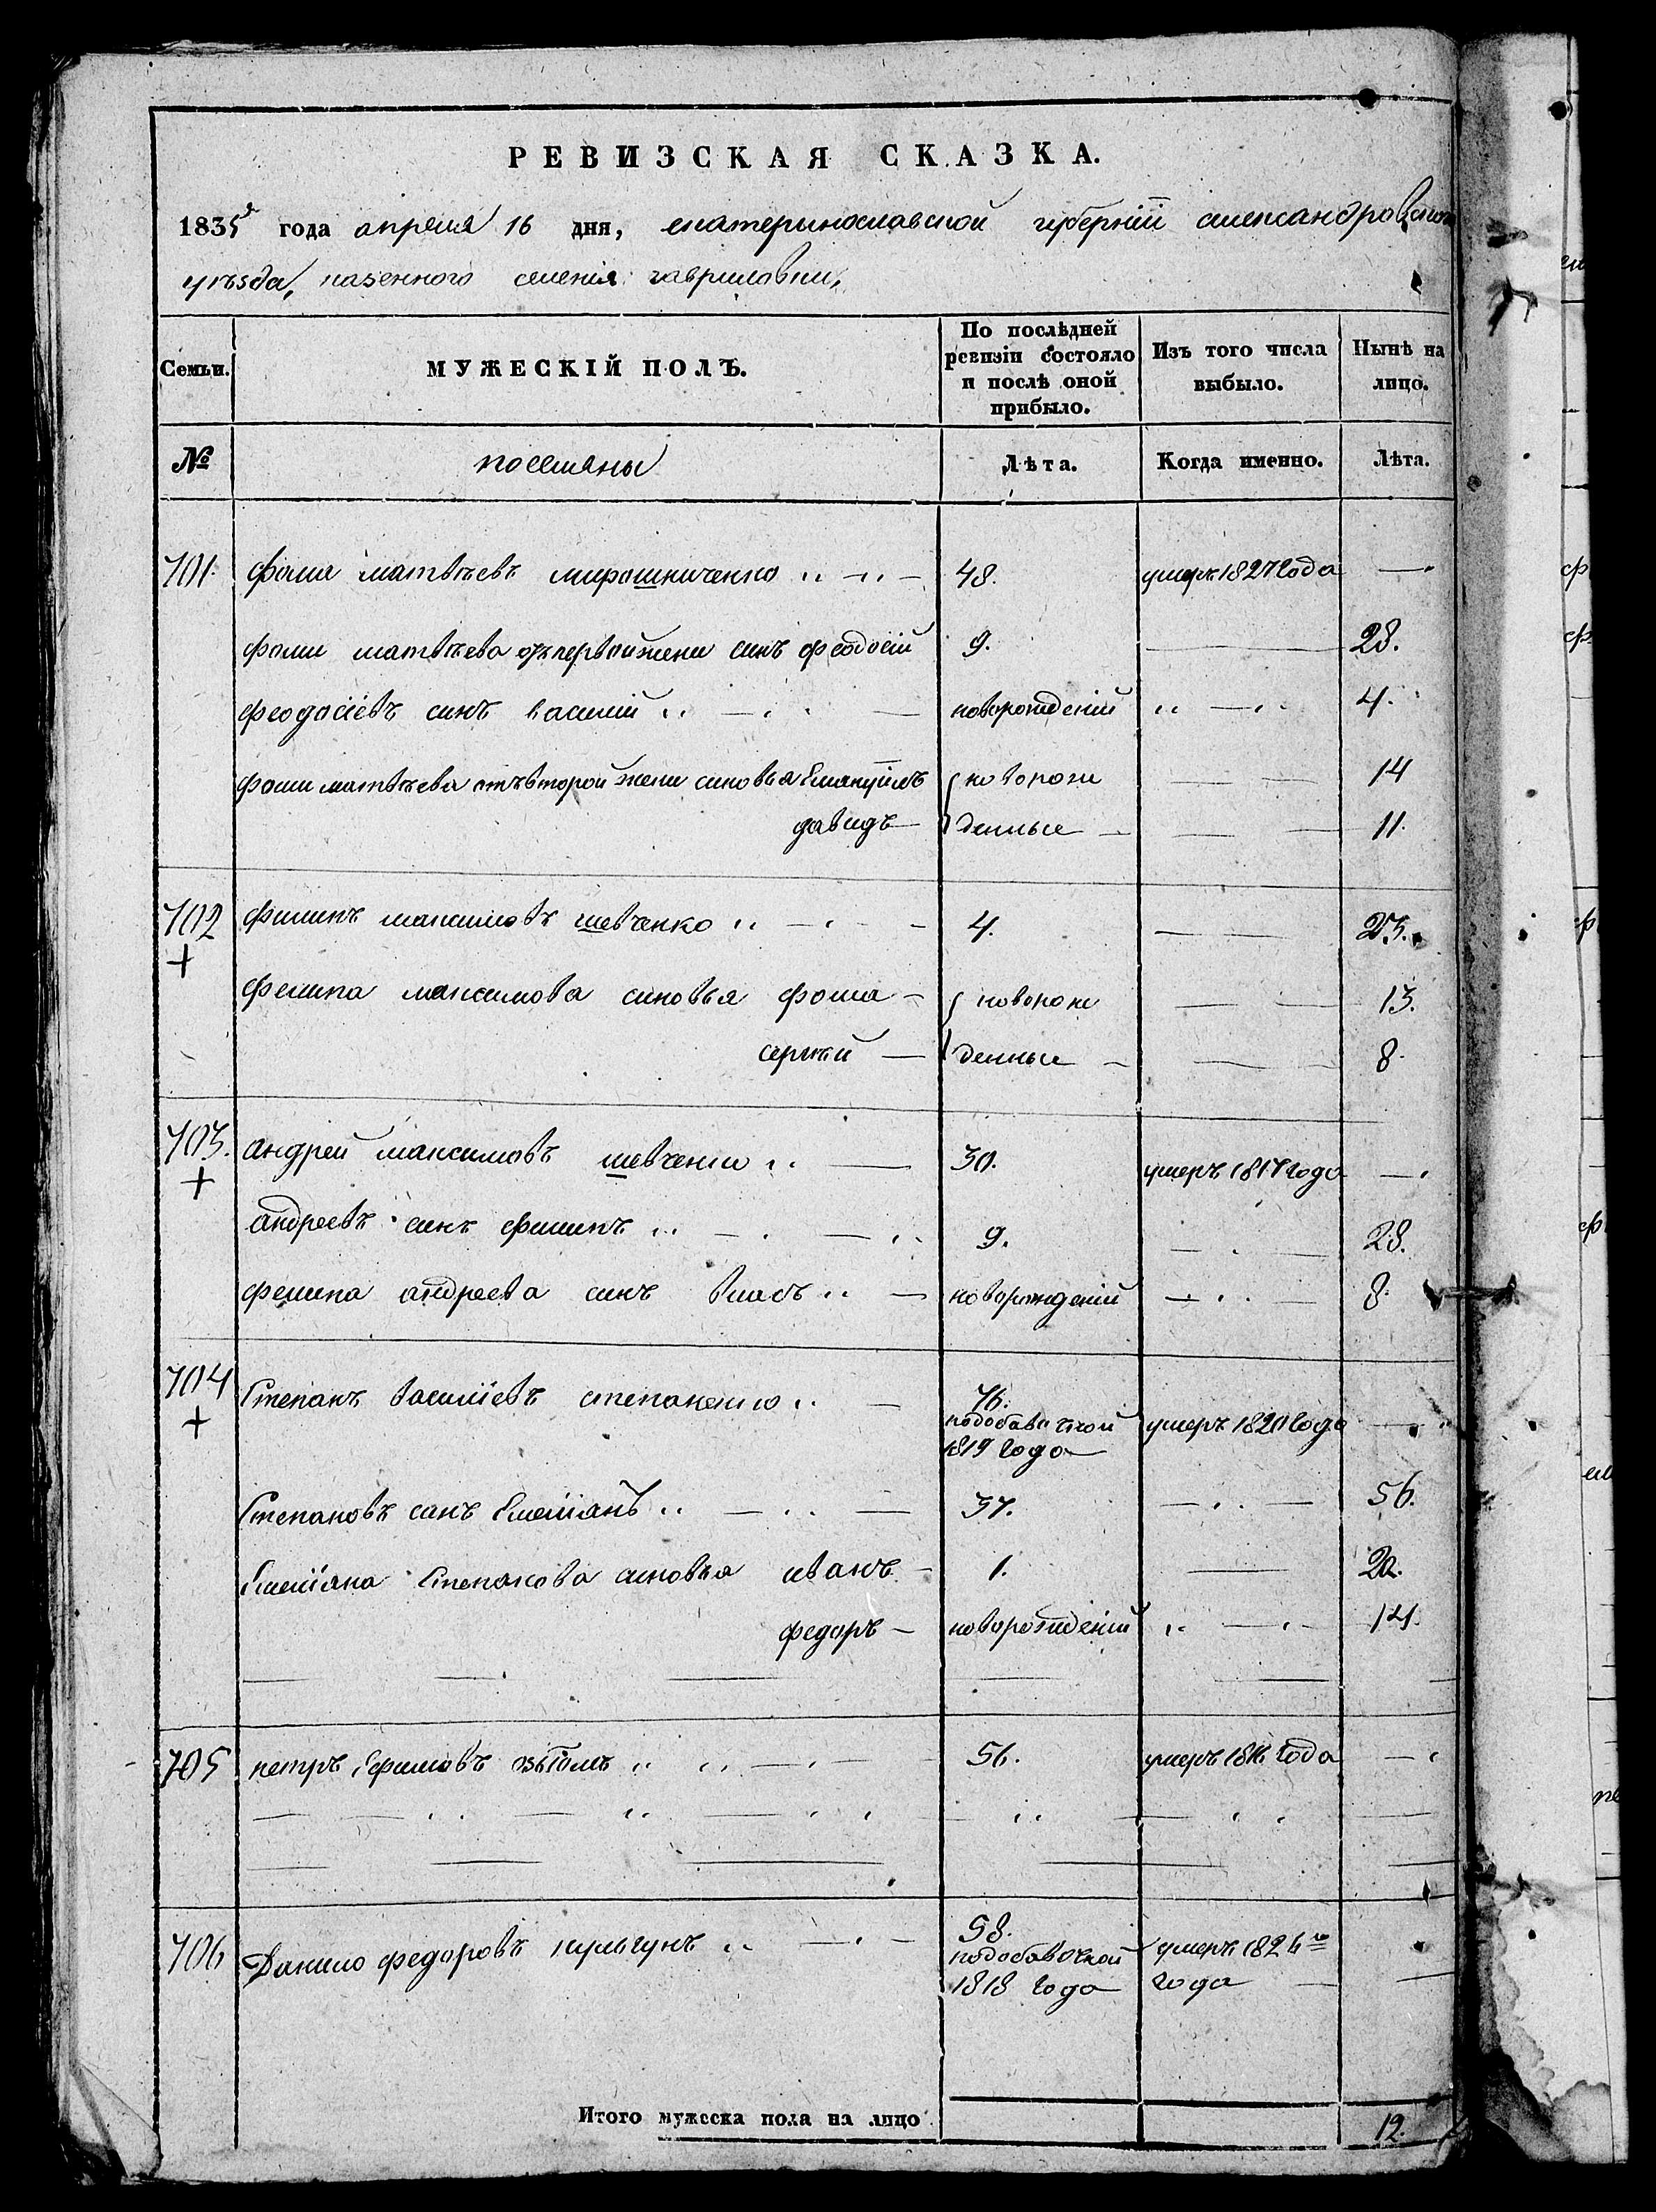 РЕВИЗСКАЯ СКАЗКА.
1835 года апреля 16 дня, екатеринославской губерніи александровского
уѣзда, казенного селенія гавриловки,
Семьи. МУЖЕСКІЙ ПОЛЪ. По послѣдней ревизіи состояло и послѣ оной прибыло. Изъ того числа выбыло. Нынѣ на лицо.
№ поселяны Лѣта. Когда именно. Лѣта.
701. фома матвѣевъ мирошниченко 48. умеръ 1827 года —
фомы матвѣева отъ первой жени синъ феодосій 9. — 28.
феодосіевъ синъ василій новорожденій — 4.
фоми матвѣева отъ второй жени синовья Емануилъ новорож — 14
давидъ — денные — 11.
702 филипъ максимовъ шевченко 4. — 23.
+
филипа максимова синовья фома — новорож — 13.
сергѣй — денные — 8.
703. андрей максимовъ шевченко 30. умеръ 1817 года —
+
андреевъ синъ филипъ 9. — 28.
филипа андреева синъ власъ новорожденій — 8.
704 Степанъ василіевъ степаненко 76. подобавочной 1819 года умеръ 1820 года —
+
Степановъ синъ Емеліанъ 37. — 56.
Емеліана Степанова синовья иванъ — 1. — 20.
федоръ — новорожденій — 14.
705 петръ Ефимовъ 56. умеръ 1816 года —
706 Данило федоровъ кульгунъ 58. подобавочной 1818 года умеръ 1826го года —
Итого мужеска пола на лицо 12.